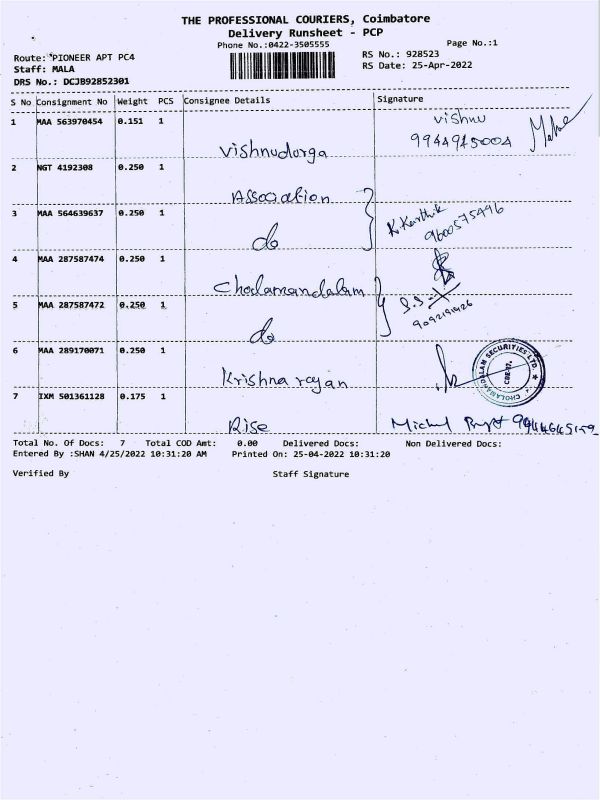 THE PROFESSIONAL COURIERS, Coimbatore
Delivery Runsheet - PCP
Phone No.:0422-3505555
Page No.:1
Route: PIONEER APT PC4
Staff: MALA
DRS No.: DCJB92852301
RS No.: 928523
RS Date: 25-Apr-2022
S No Consignment No Weight PCS Consignee Details Signature
1 MAA 563970454 0.151 1 Vishnudurga Vishnu
9944915004
2 NGT 4192308 0.250 1 Association
3 MAA 564639637 0.250 1 do K.Karthik
9600575496
4 MAA 287587474 0.250 1 Cholamandalam
5 MAA 287587472 0.250 1 do S.S
6 MAA 289170071 0.250 1 Krishna rajan
CHOLAMANDALAM SECURITIES LTD.
7 IXM 501361128 0.175 1 Rise
Total No. Of Docs: 7 Total COD Amt: 0.00 Delivered Docs: Non Delivered Docs:
Entered By :SHAN 4/25/2022 10:31:20 AM Printed On: 25-04-2022 10:31:20
Verified By Staff Signature